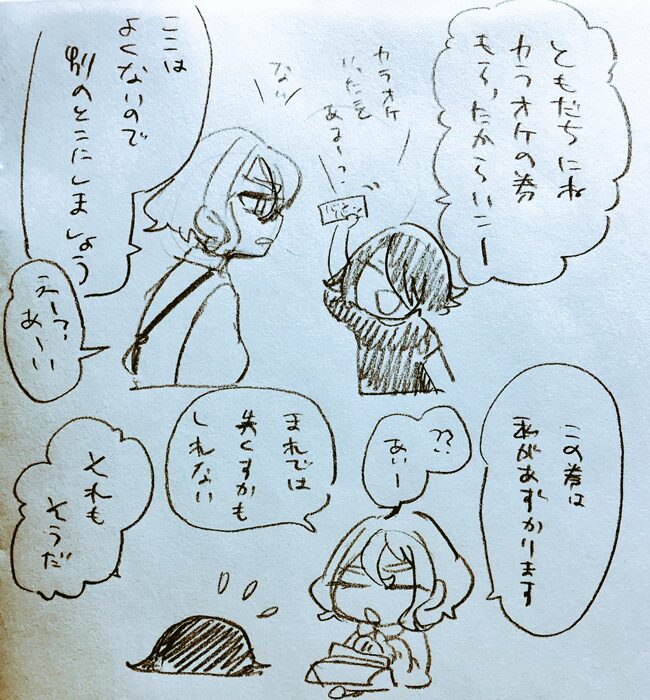 ともだちにね
カラオケの券
もらったからいこー
カラオケ
いったこと
ある〜?
ない
ここは
よくないので
別のとこにしましょう
えー?
あーい
この券は
私があずかります
??
あぃー
まれでは
失くすかも
しれない
それも
そうだ